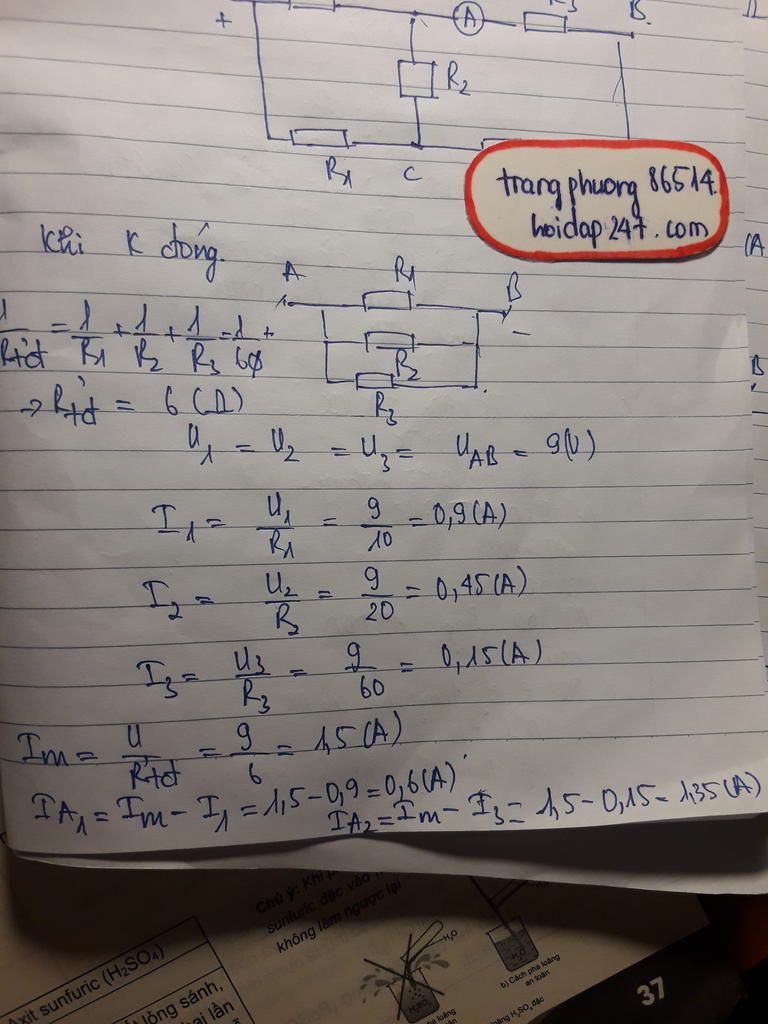 + A R3 B.
R2
R1 C
trangphuong 86514.
hoidap247.com
Khi K đóng.
A R1 B
R2
R3
1/Rtđ = 1/R1 + 1/R2 + 1/R3 = 1/60 +
→ Rtđ = 6 (Ω)
U1 = U2 = U3 = UAB = 9(V)
I1 = U1/R1 = 9/10 = 0,9(A)
I2 = U2/R2 = 9/20 = 0,45(A)
I3 = U3/R3 = 9/60 = 0,15(A)
Im = U/Rtđ = 9/6 = 1,5(A)
IA1 = Im - I1 = 1,5 - 0,9 = 0,6(A)
IA2 = Im - I3 = 1,5 - 0,15 = 1,35(A)
Chú ý: Khi
sunfuric đặc vào
không làm ngược lại
Axit sunfuric (H2SO4)
lỏng sánh,
hai lần
H2O
b) Cách pha loãng
an toàn
37